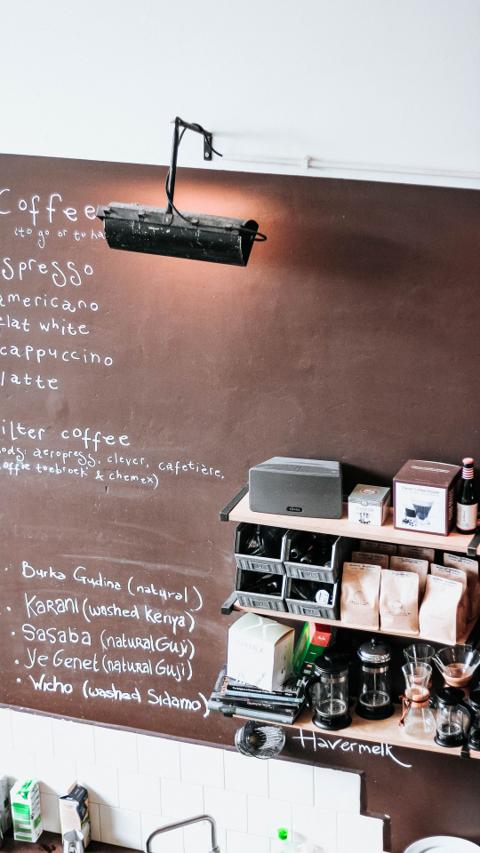 Coffee
(to go or to ha
spresso
americano
flat white
cappuccino
latte
ilter coffee
ods: aeropress, clever, cafetière,
toebrock & chemex)
• Burka Gudina (natural)
• KARANI (washed Kenya)
• Sasaba (natural Guji)
• Ye Genet (natural Guji)
• Wicho (washed Sidamo)
Havermelk